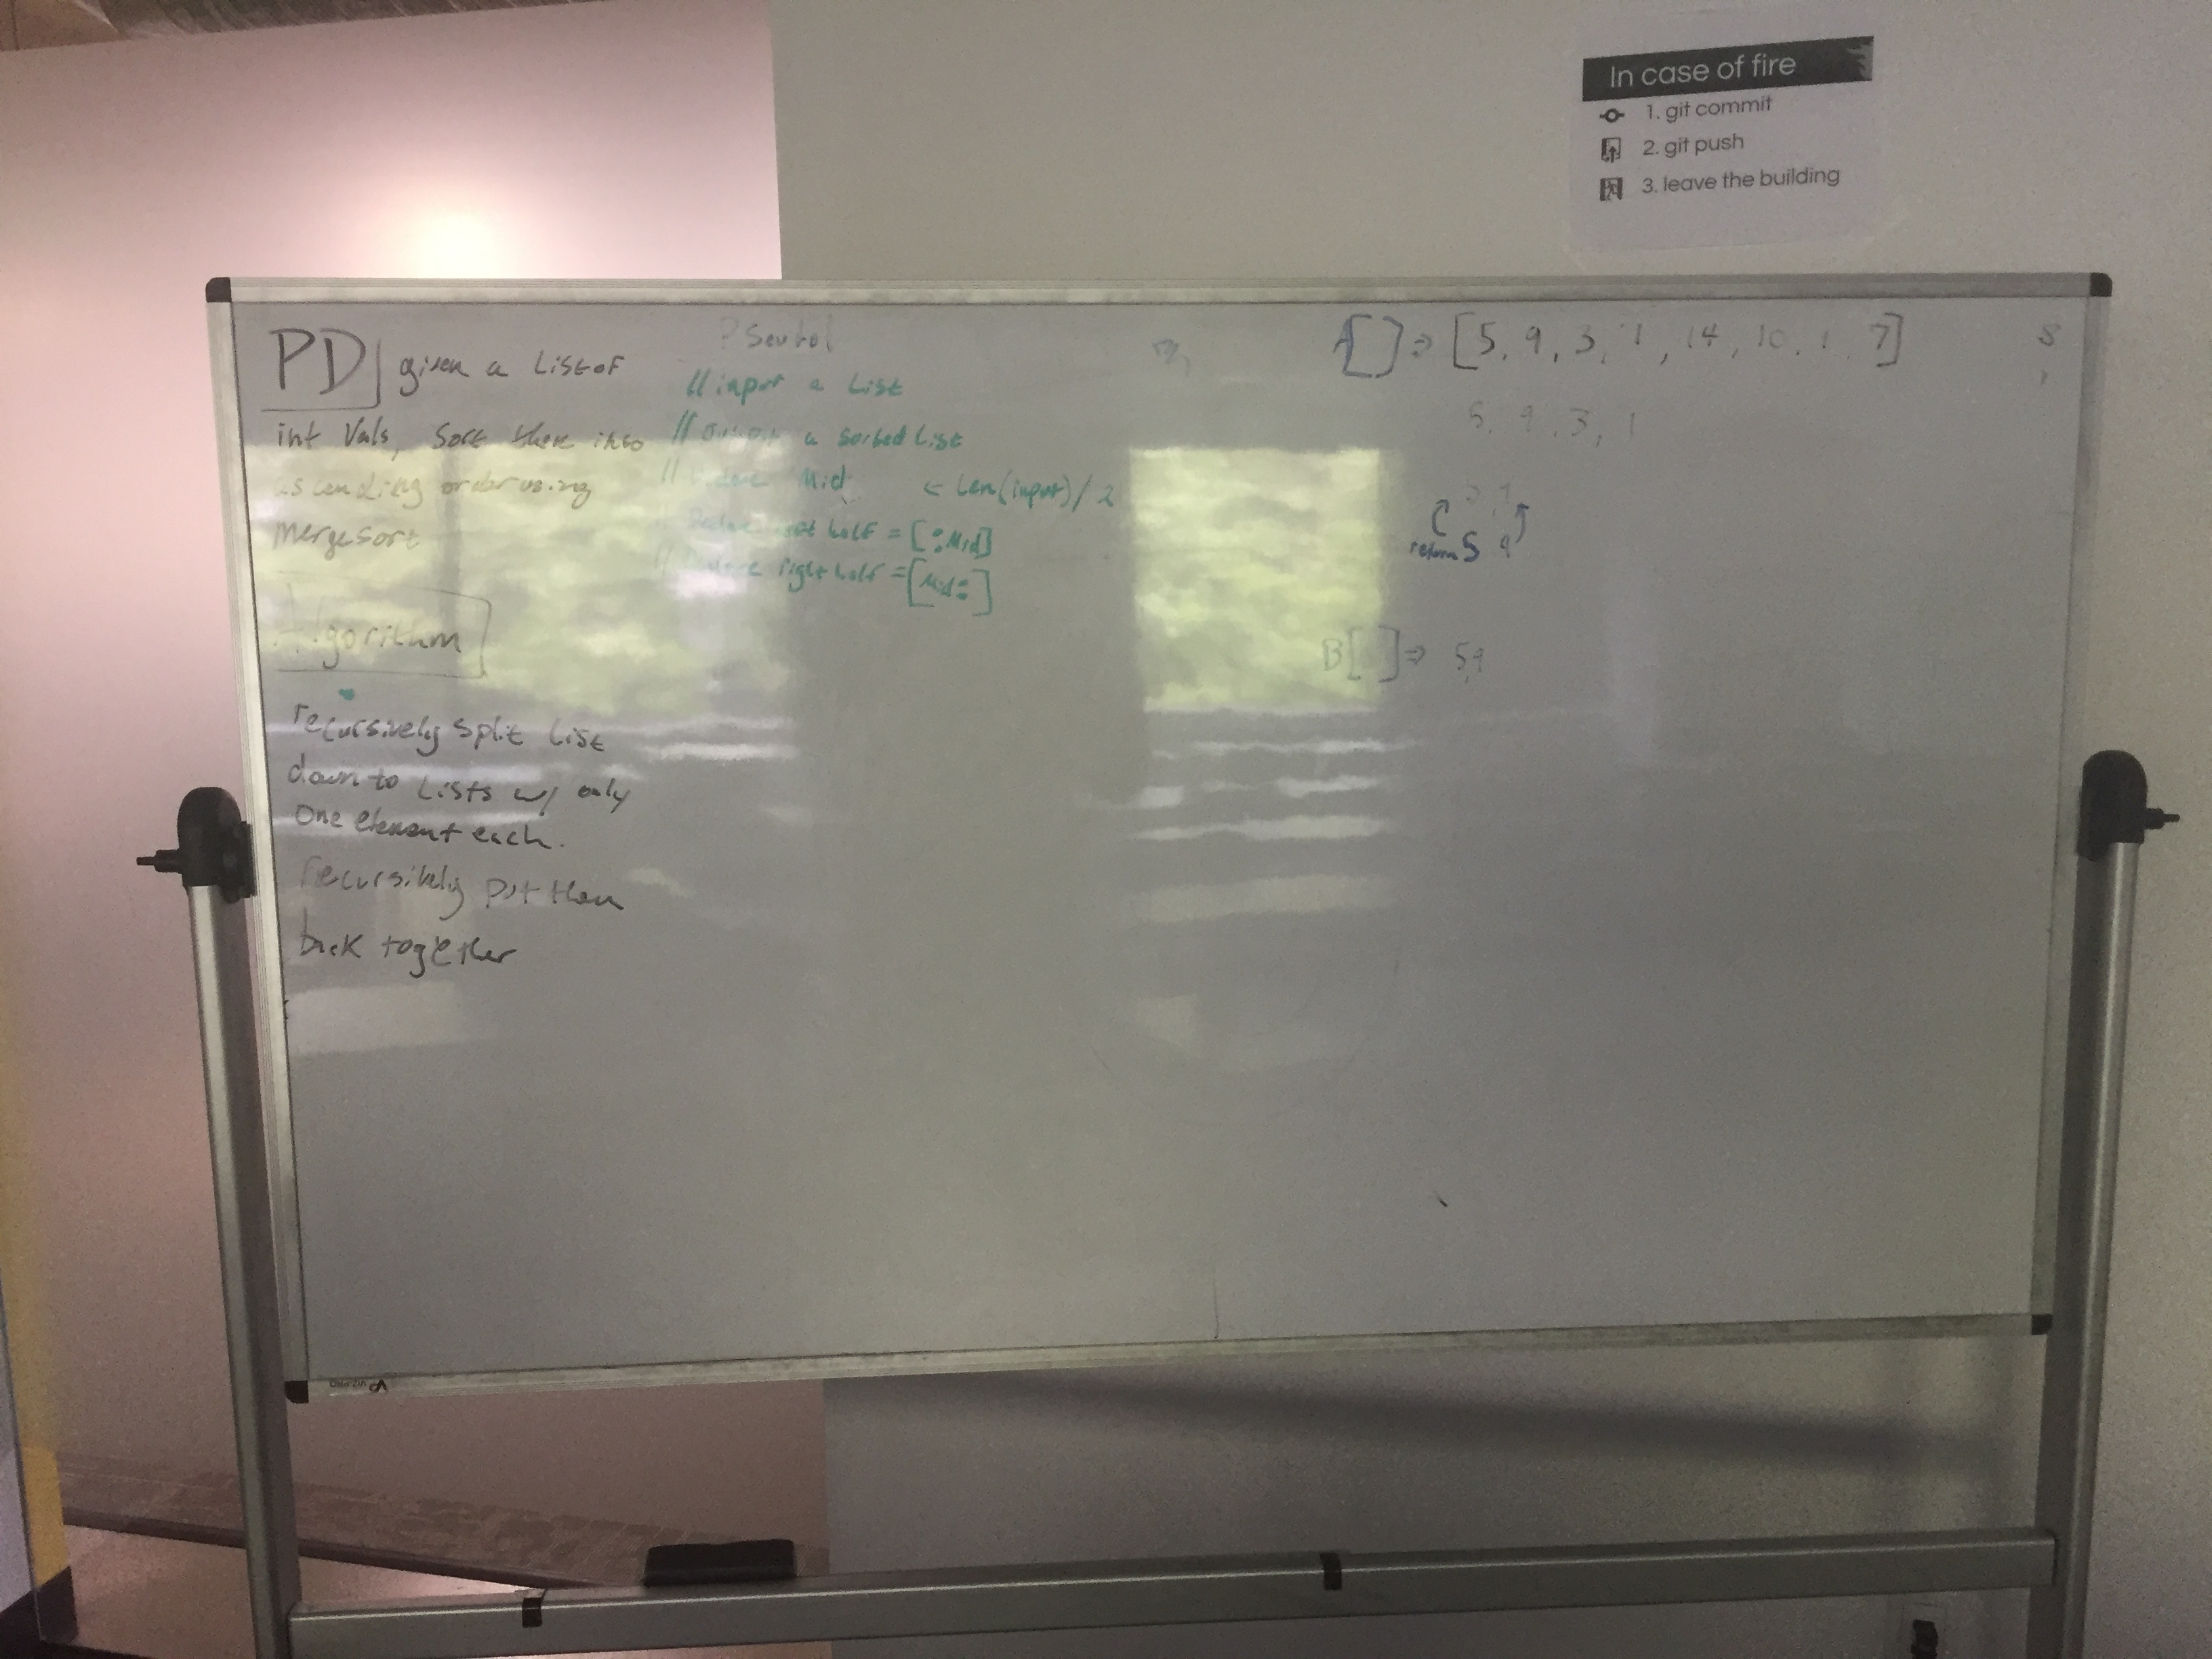 In case of fire
1. git commit
2. git push
3. leave the building
PD given a List of
int Vals, Sort these into
ascending order using
mergesort
Algorithm
recursively split List
down to Lists w/ only
one element each.
recursively put them
back together
// input a List
// output a sorted List
// Mid ← Len(input)/2
// Declare left half = [:Mid]
// Declare right half = [Mid:]
A[ ] ⇒ [5, 9, 3, 1, 14, 10, 1, 7]
5, 9, 3, 1
return 5 9
B[ ] ⇒ 5,9